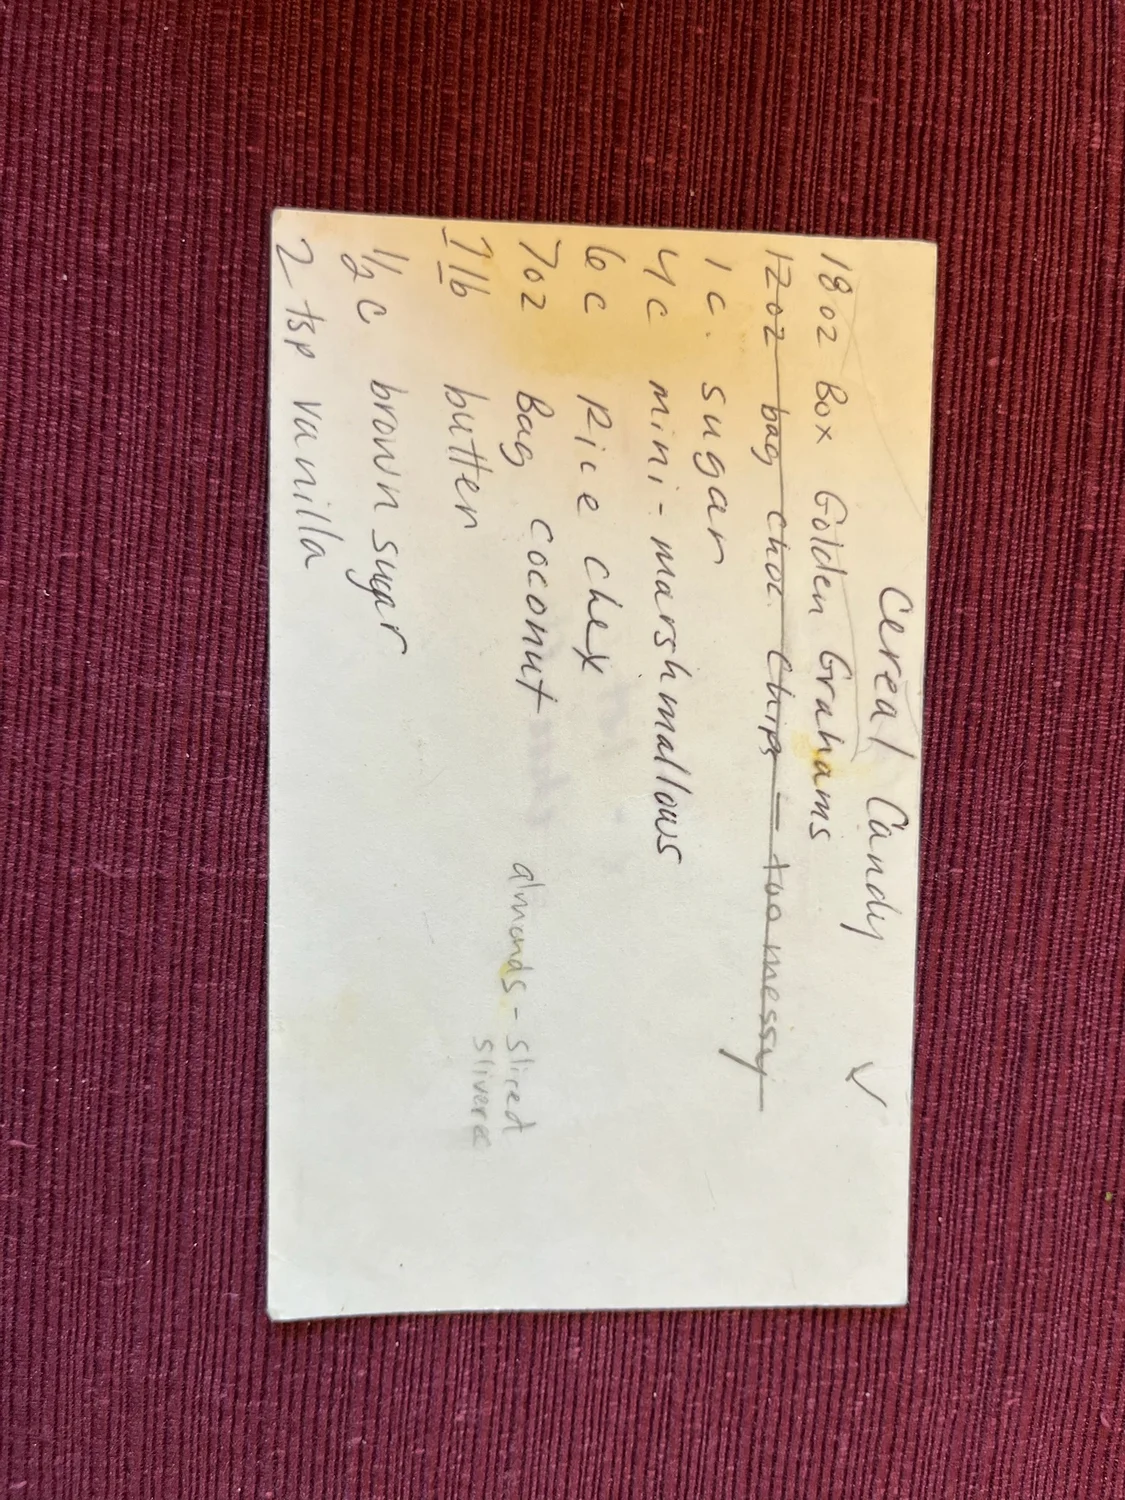 Cereal Candy ✓
18oz Box Golden Grahams
12oz bag choc. chips - too messy
1 c. sugar
4 c mini-marshmallows
6 c Rice chex
7oz Bag coconut almonds - sliced
slivered
1 lb butter
1/2 c brown sugar
2 tsp vanilla